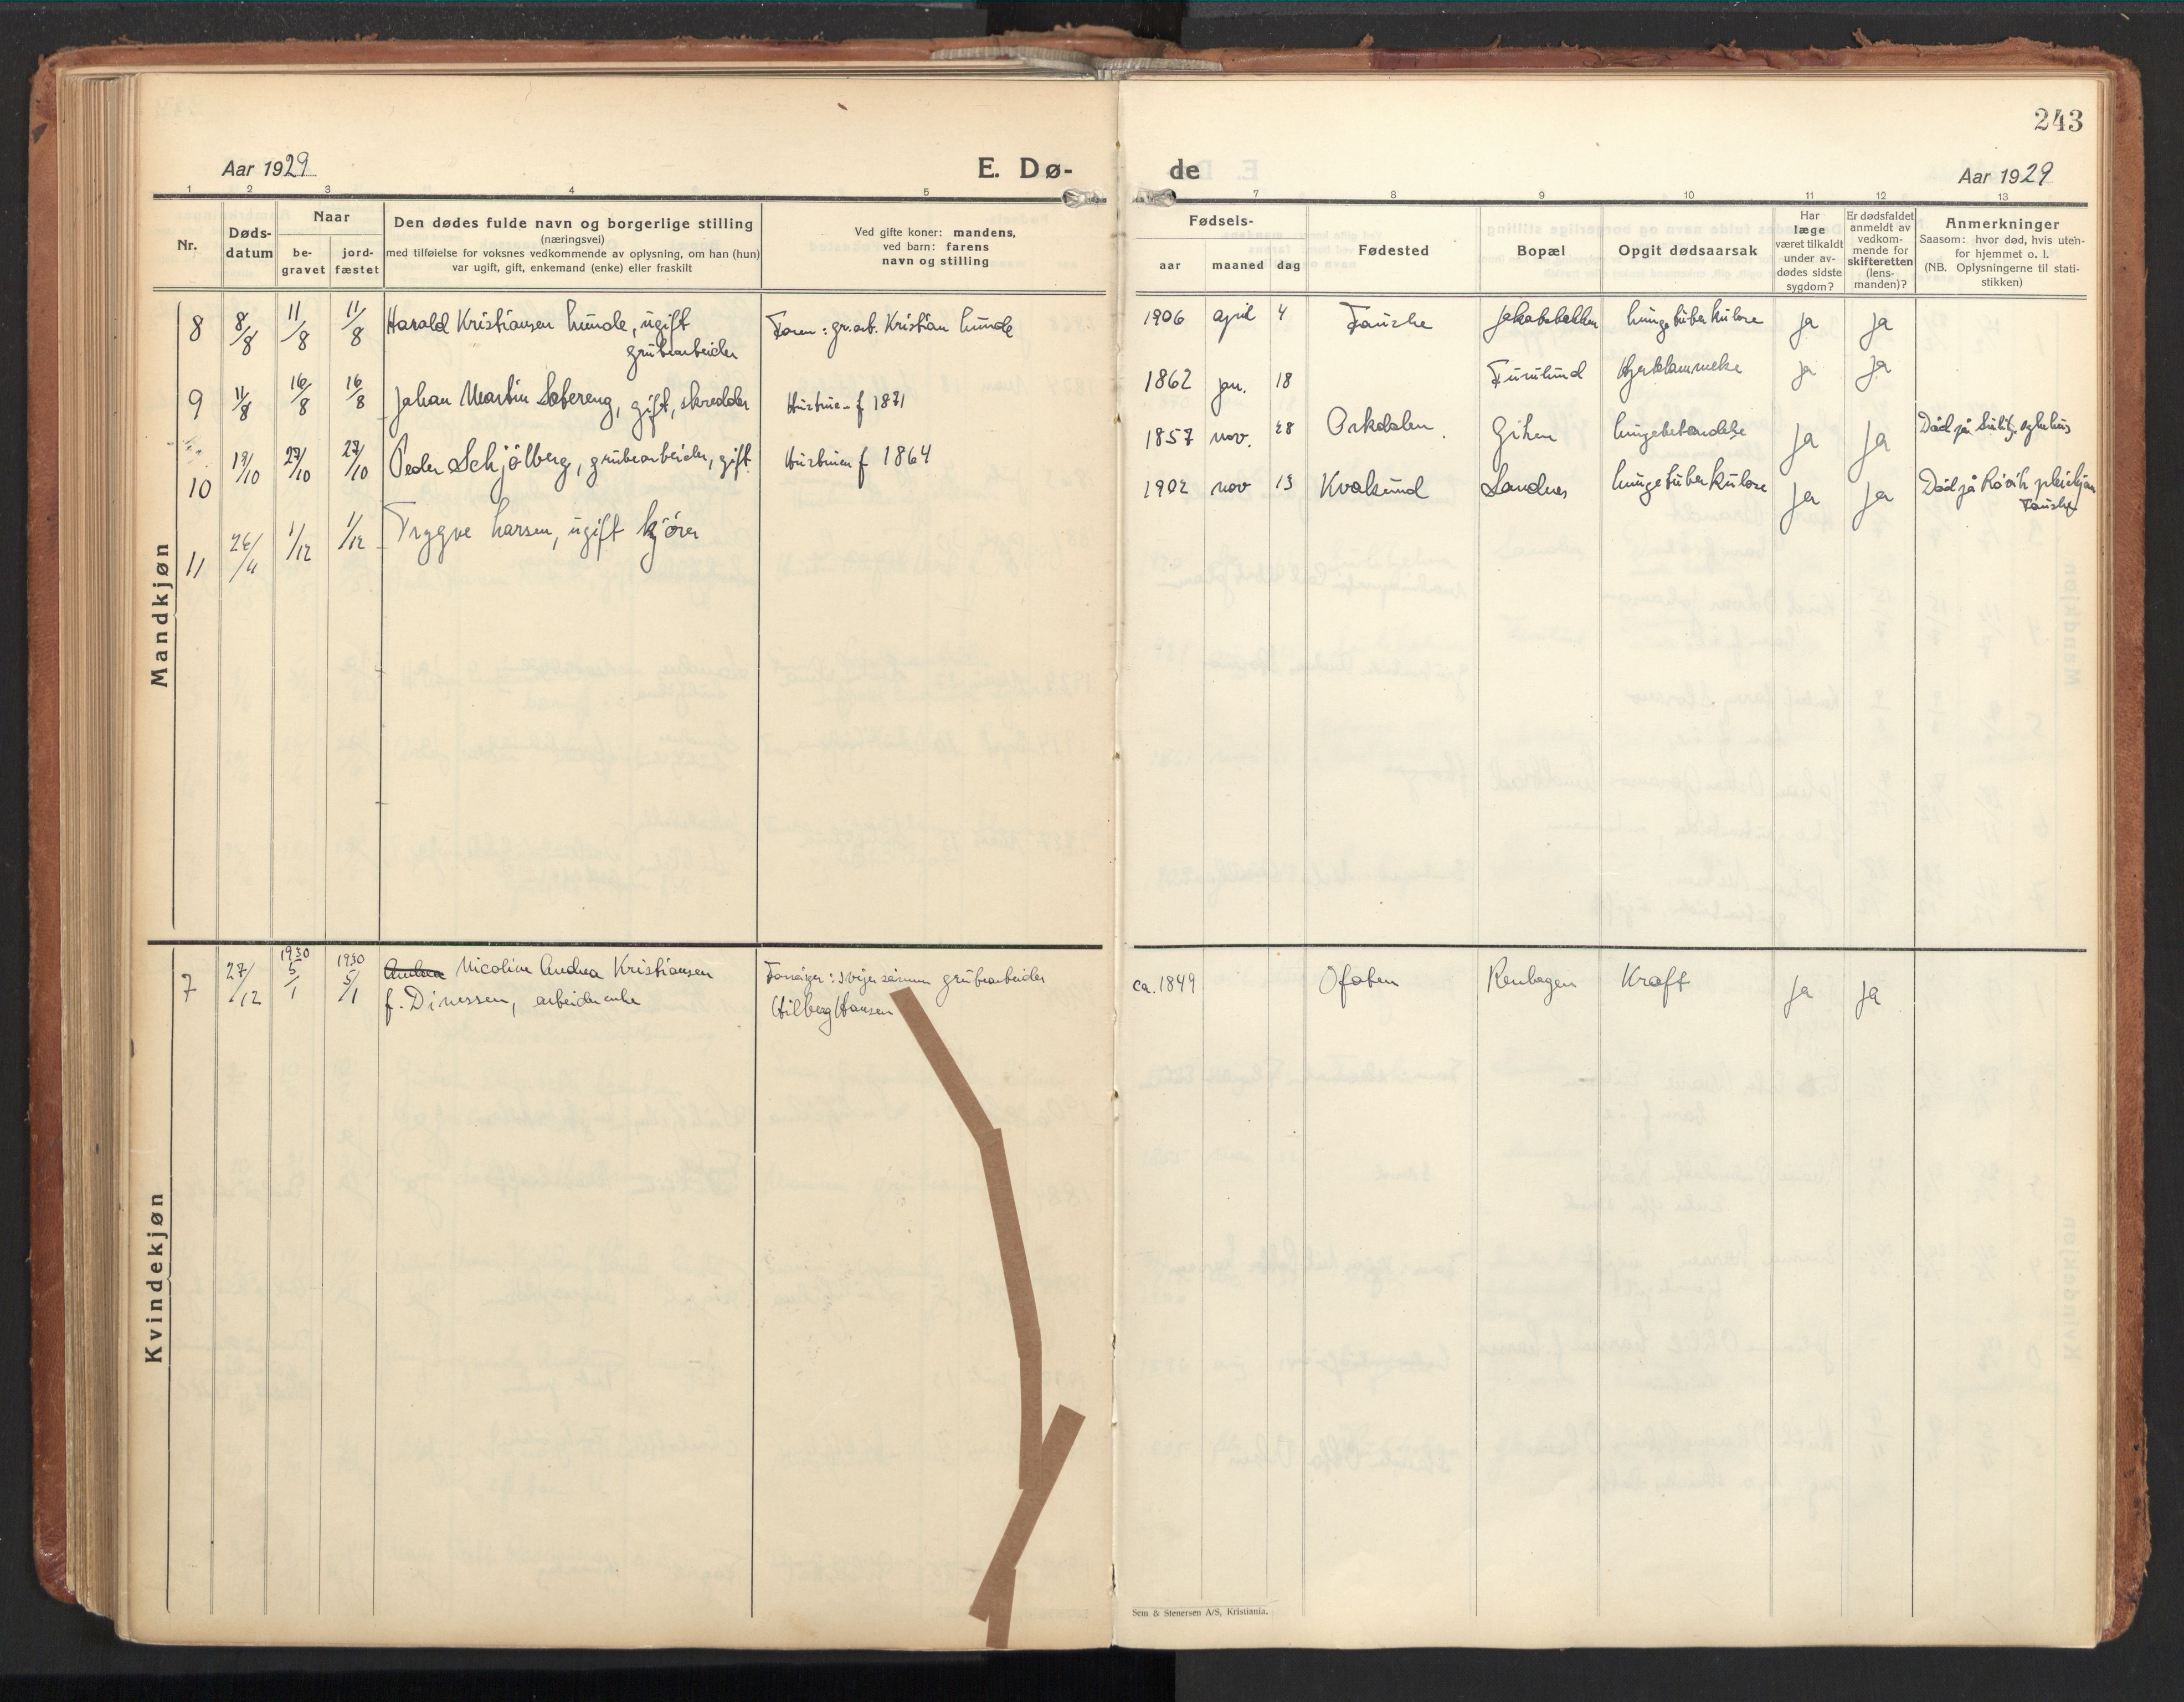 243
Aar 1929
E. Dø-
de
Aar 1929
1 2 3 4 5 7 8 9 10 11 12 13
Nr.
Døds-
datum
Naar
be-
gravet
jord-
fæstet
Den dødes fulde navn og borgerlige stilling
(næringsvei)
med tilføielse for voksnes vedkommende av oplysning, om han (hun)
var ugift, gift, enkemand (enke) eller fraskilt
Ved gifte koner: mandens,
ved barn: farens
navn og stilling
Fødsels-
aar maaned dag
Fødested
Bopæl
Opgit dødsaarsak
Har
læge
været tilkaldt
under av-
dødes sidste
sygdom?
Er dødsfaldet
anmeldt av
vedkom-
mende for
skifteretten
(lens-
manden)?
Anmerkninger
Saasom: hvor død, hvis uten-
for hjemmet o. l.
(NB. Oplysningerne til stati-
stikken)
Mandkjøn
8 8/8 11/8 11/8 Harald Kristiansen Lunde, ugift
grubearbeider
Faren: gr.arb. Kristian Lunde
1906 april 4 Fauske Jakobsbakken Lungetuberkulose ja ja
9 11/8 16/8 16/8 Johan Martin Sætereng, gift, skredder
Hustruen f 1871
1862 jan. 18 Furulund Hjertelammelse ja ja
10 19/10 27/10 27/10 Peder Schjölberg, grubearbeider, gift
Hustruen f 1864
1857 nov. 28 Orkdalen Giken Lungebetendelse ja ja Död på Sulitj. sykehus
11 26/11 1/12 1/12 Trygve Larsen, ugift kjörer
1902 nov 13 Kvalsund Sandnes Lungetuberkulose ja ja Död på Rövik pleiehjem
Fauske
Kvindekjøn
7 27/12 1930 5/1 1930 5/1 Nicoline Andrea Kristiansen
f. Dinessen, arbeiderenke
Forsörger: svigersönnen grubearbeider
Hilberg Hansen
ca. 1849 Ofoten Renhagen Kræft ja ja
Sem & Stenersen A/S, Kristiania.